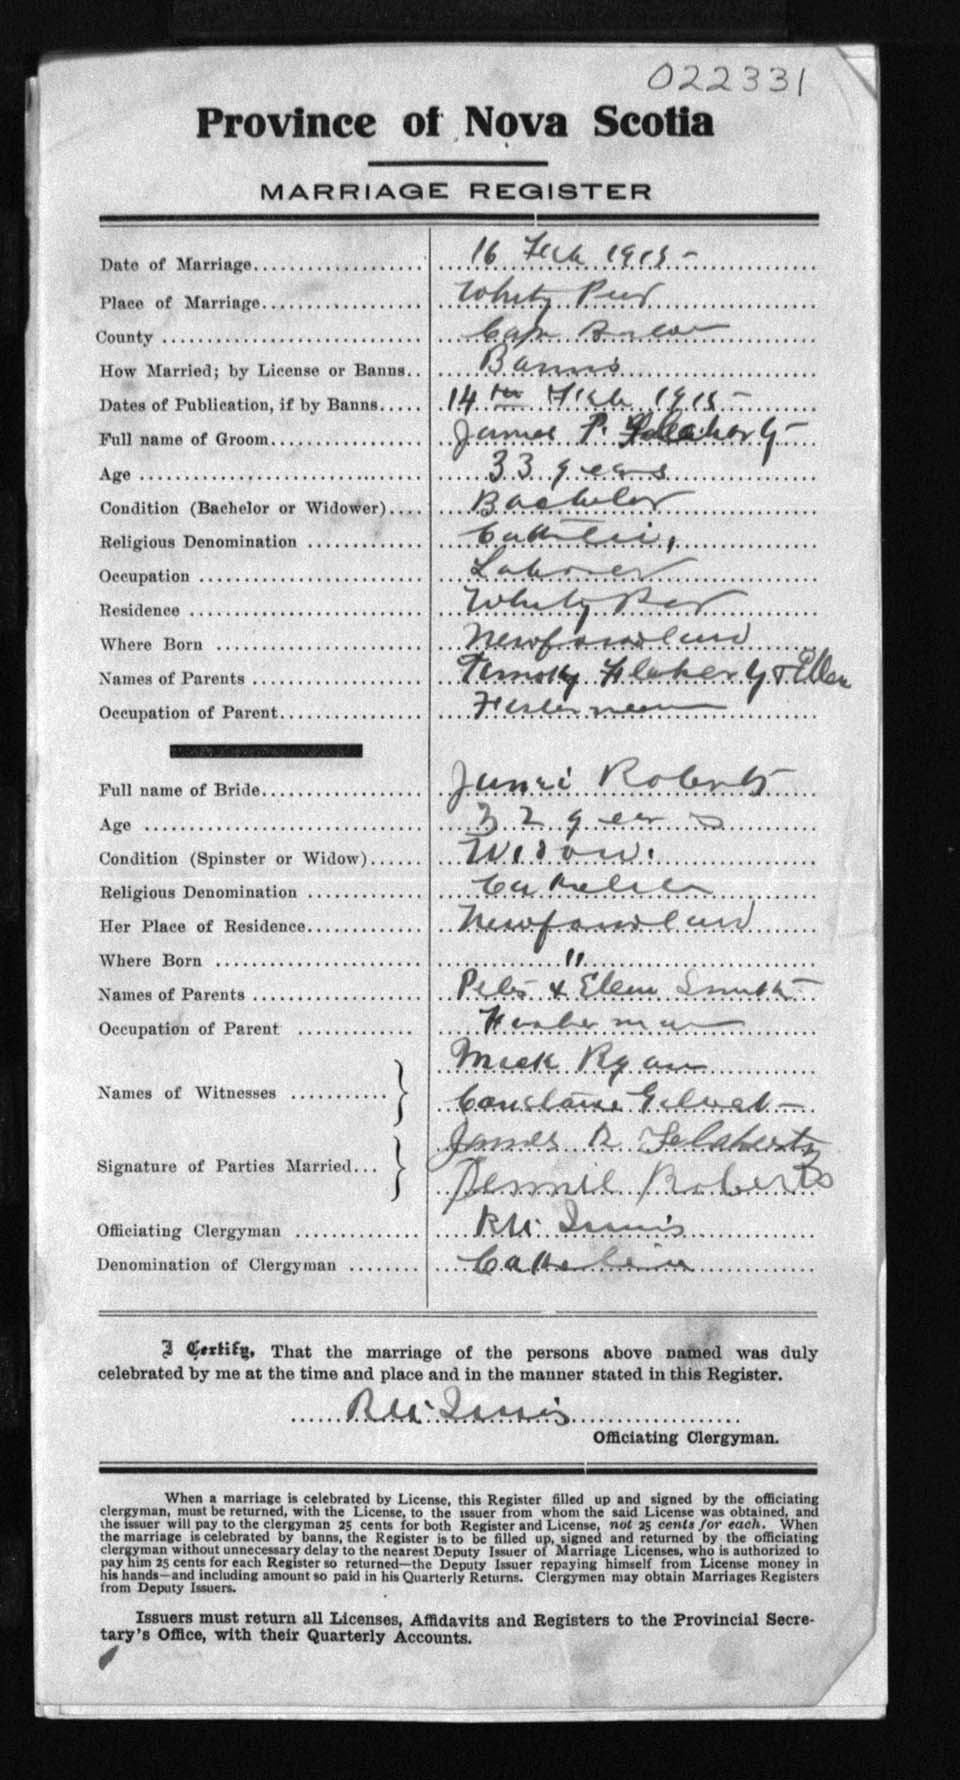 022331
Province of Nova Scotia
MARRIAGE REGISTER
Date of Marriage 16 Feb 1915
Place of Marriage Whitney Pier
County Cape Breton
How Married; by License or Banns Banns
Dates of Publication, if by Banns 14th Feb 1915
Full name of Groom James P. Flaherty
Age 33 years
Condition (Bachelor or Widower) Bachelor
Religious Denomination Catholic
Occupation Laborer
Residence Whitney Pier
Where Born Newfoundland
Names of Parents Timothy Flaherty & Ellen
Occupation of Parent Fisherman
Full name of Bride Roberts
Age 32 years
Condition (Spinster or Widow) Widow
Religious Denomination Catholic
Her Place of Residence Newfoundland
Where Born "
Names of Parents & Ellen Smith
Occupation of Parent Fisherman
Names of Witnesses Mick Ryan
Signature of Parties Married James Flaherty
Jennie Roberts
Officiating Clergyman
Denomination of Clergyman Catholic
I Certify, That the marriage of the persons above named was duly
celebrated by me at the time and place and in the manner stated in this Register.
Officiating Clergyman.
When a marriage is celebrated by License, this Register filled up and signed by the officiating
clergyman, must be returned, with the License, to the issuer from whom the said License was obtained, and
the issuer will pay to the clergyman 25 cents for both Register and License, not 25 cents for each. When
the marriage is celebrated by banns, the Register is to be filled up, signed and returned by the officiating
clergyman without unnecessary delay to the nearest Deputy Issuer of Marriage Licenses, who is authorized to
pay him 25 cents for each Register so returned—the Deputy Issuer repaying himself from License money in
his hands—and including amount so paid in his Quarterly Returns. Clergymen may obtain Marriages Registers
from Deputy Issuers.
Issuers must return all Licenses, Affidavits and Registers to the Provincial Secre-
tary's Office, with their Quarterly Accounts.